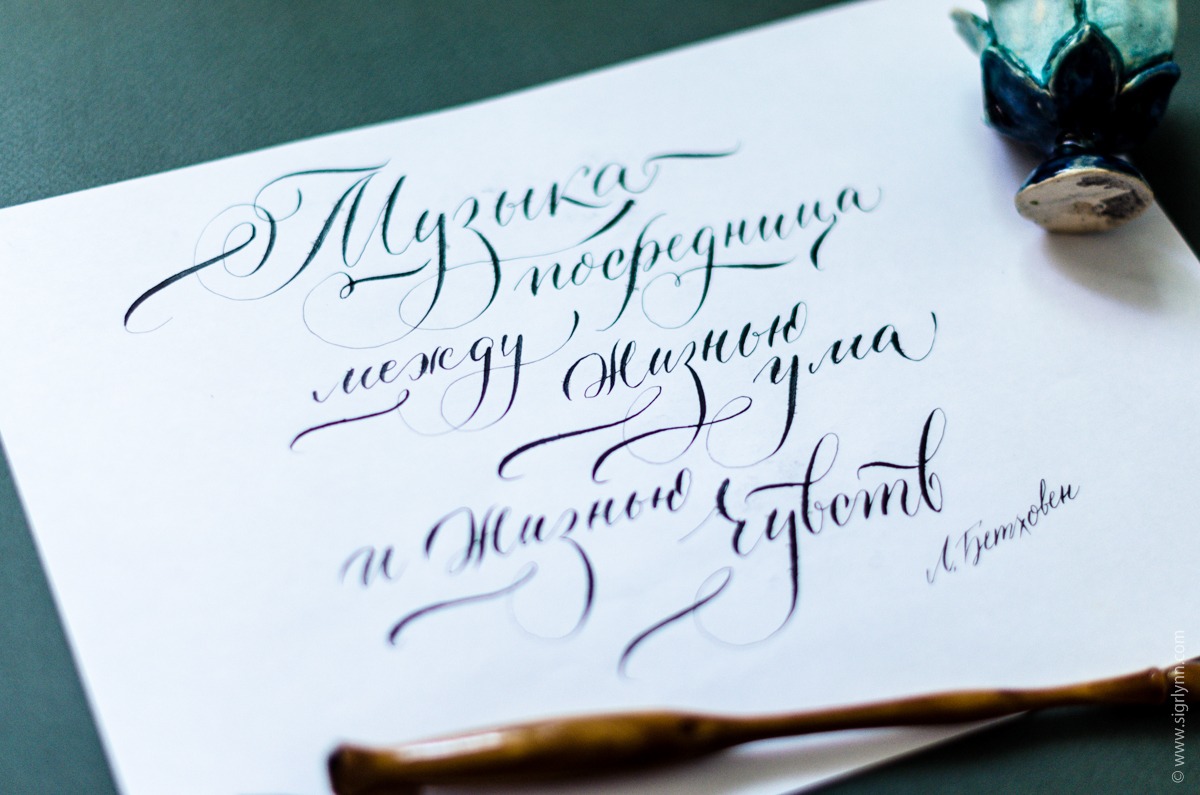 Музыка -
посредница
между жизнью
ума
и жизнью чувств
Л. Бетховен
© www.sigrlynn.com